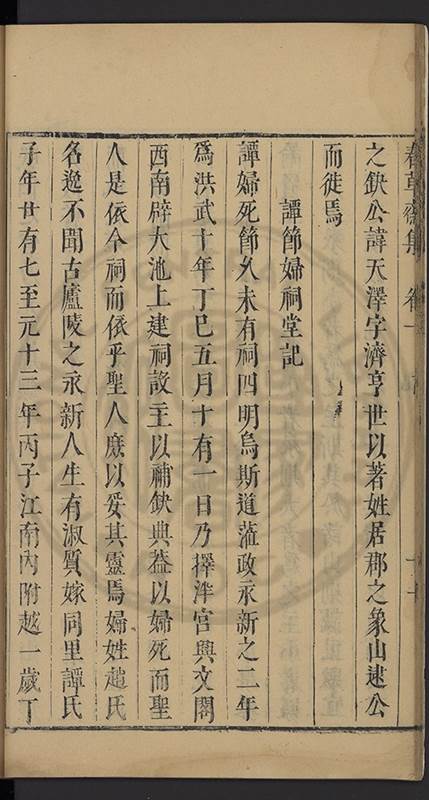 春草齋集 卷十
之缺公諱天澤字濟亨世以著姓居郡之象山逮公
而徙焉
譚節婦祠堂記
譚婦死節久未有祠四明烏斯道蒞政永新之二年
爲洪武十年丁巳五月十有一日乃擇泮宮興文閣
西南辟大池上建祠設主以補缺典葢以婦死而聖
人是依今祠而依乎聖人庶以妥其靈焉婦姓趙氏
名逸不聞古廬陵之永新人生有淑質嫁同里譚氏
子年廿有七至元十三年丙子江南內附越一歲丁